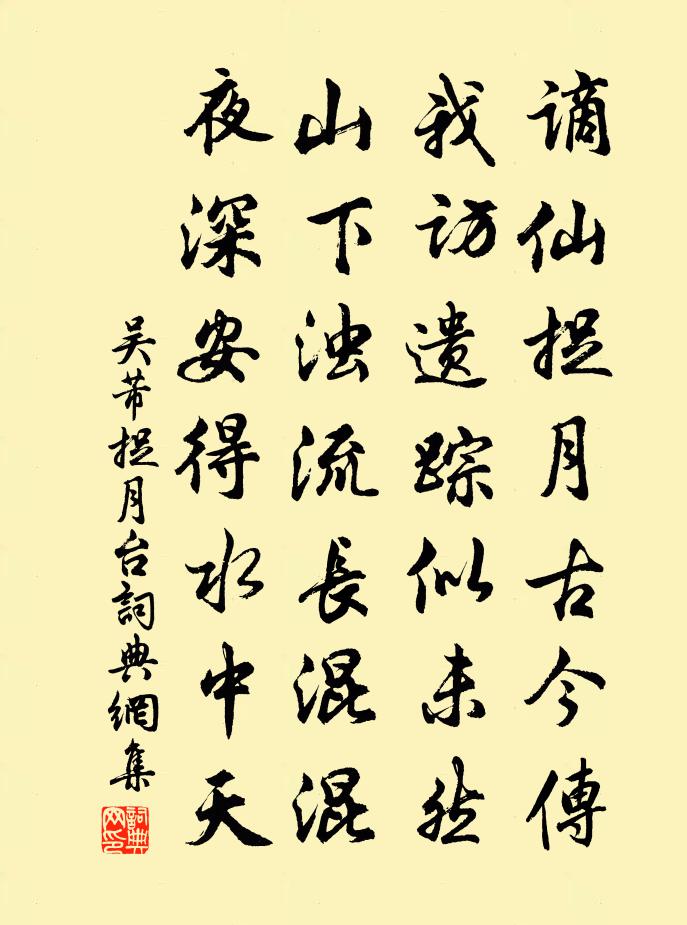 谪仙捉月古今傳
我访遗踪似未然
山下浊流長混混
夜深安得水中天
吴芾捉月台詞典網集
詞典网印